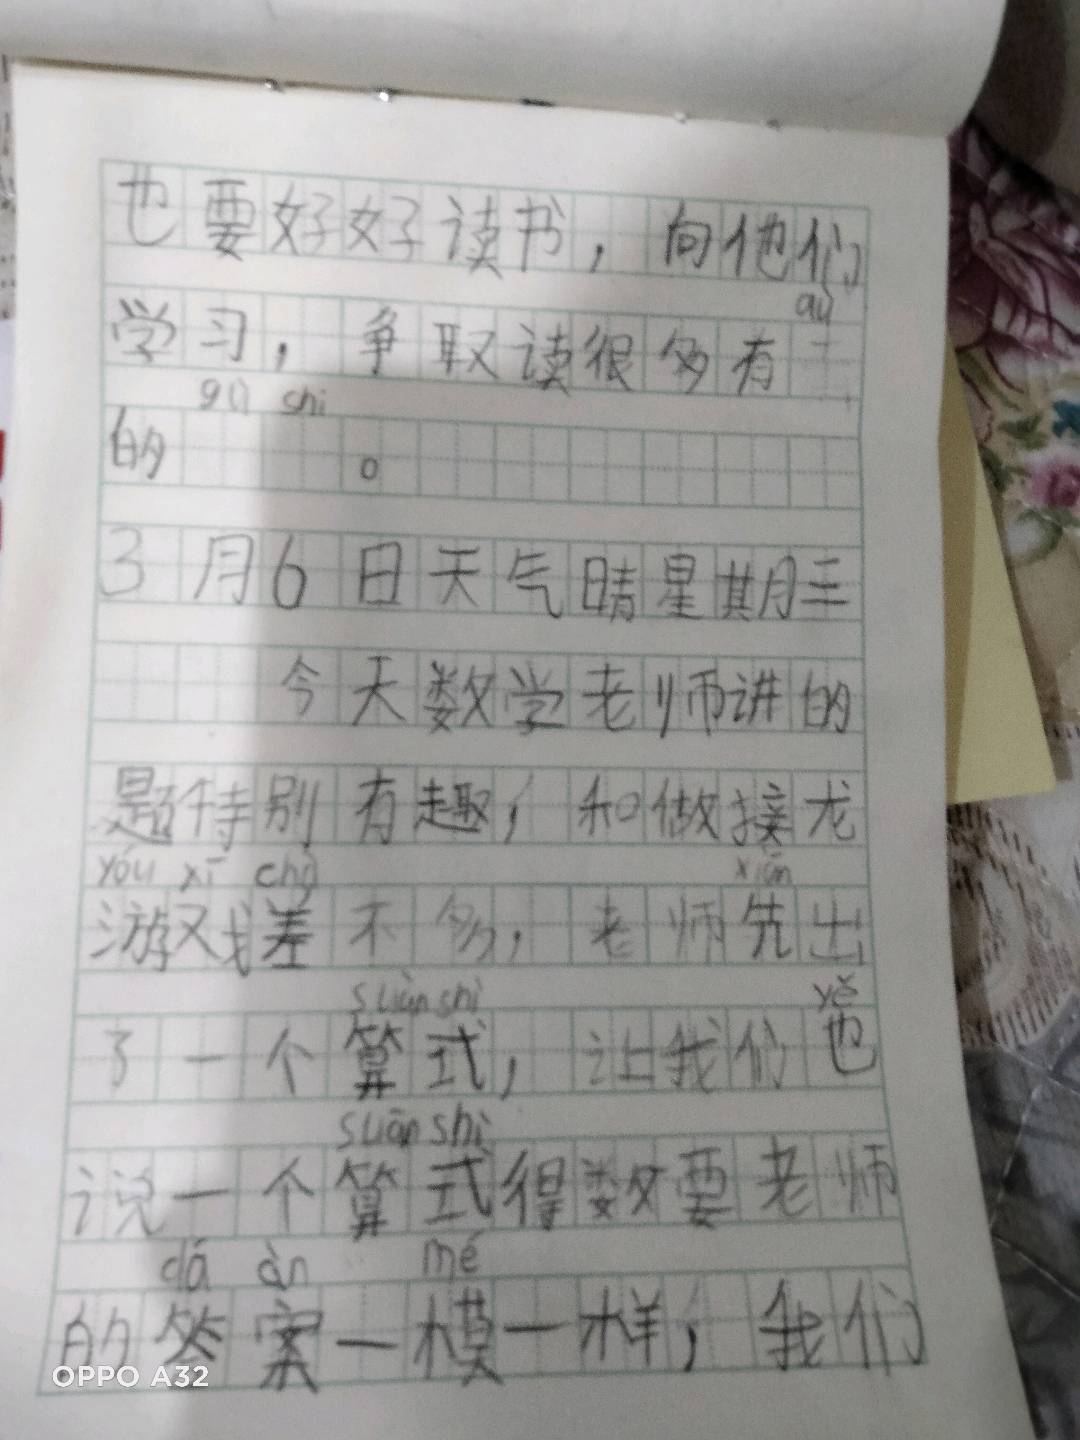 也要好好读书，向他们
qù
学习，争取读很多有
gù shi
的。
3月6日天气晴星期三
今天数学老师讲的
题特别有趣，和做接龙
yóu xī chà xiān
游戏差不多，老师先出
suàn shì yě
了一个算式，让我们也
suān shì
说一个算式得数要老师
dá àn mé
的答案一模一样，我们
OPPO A32